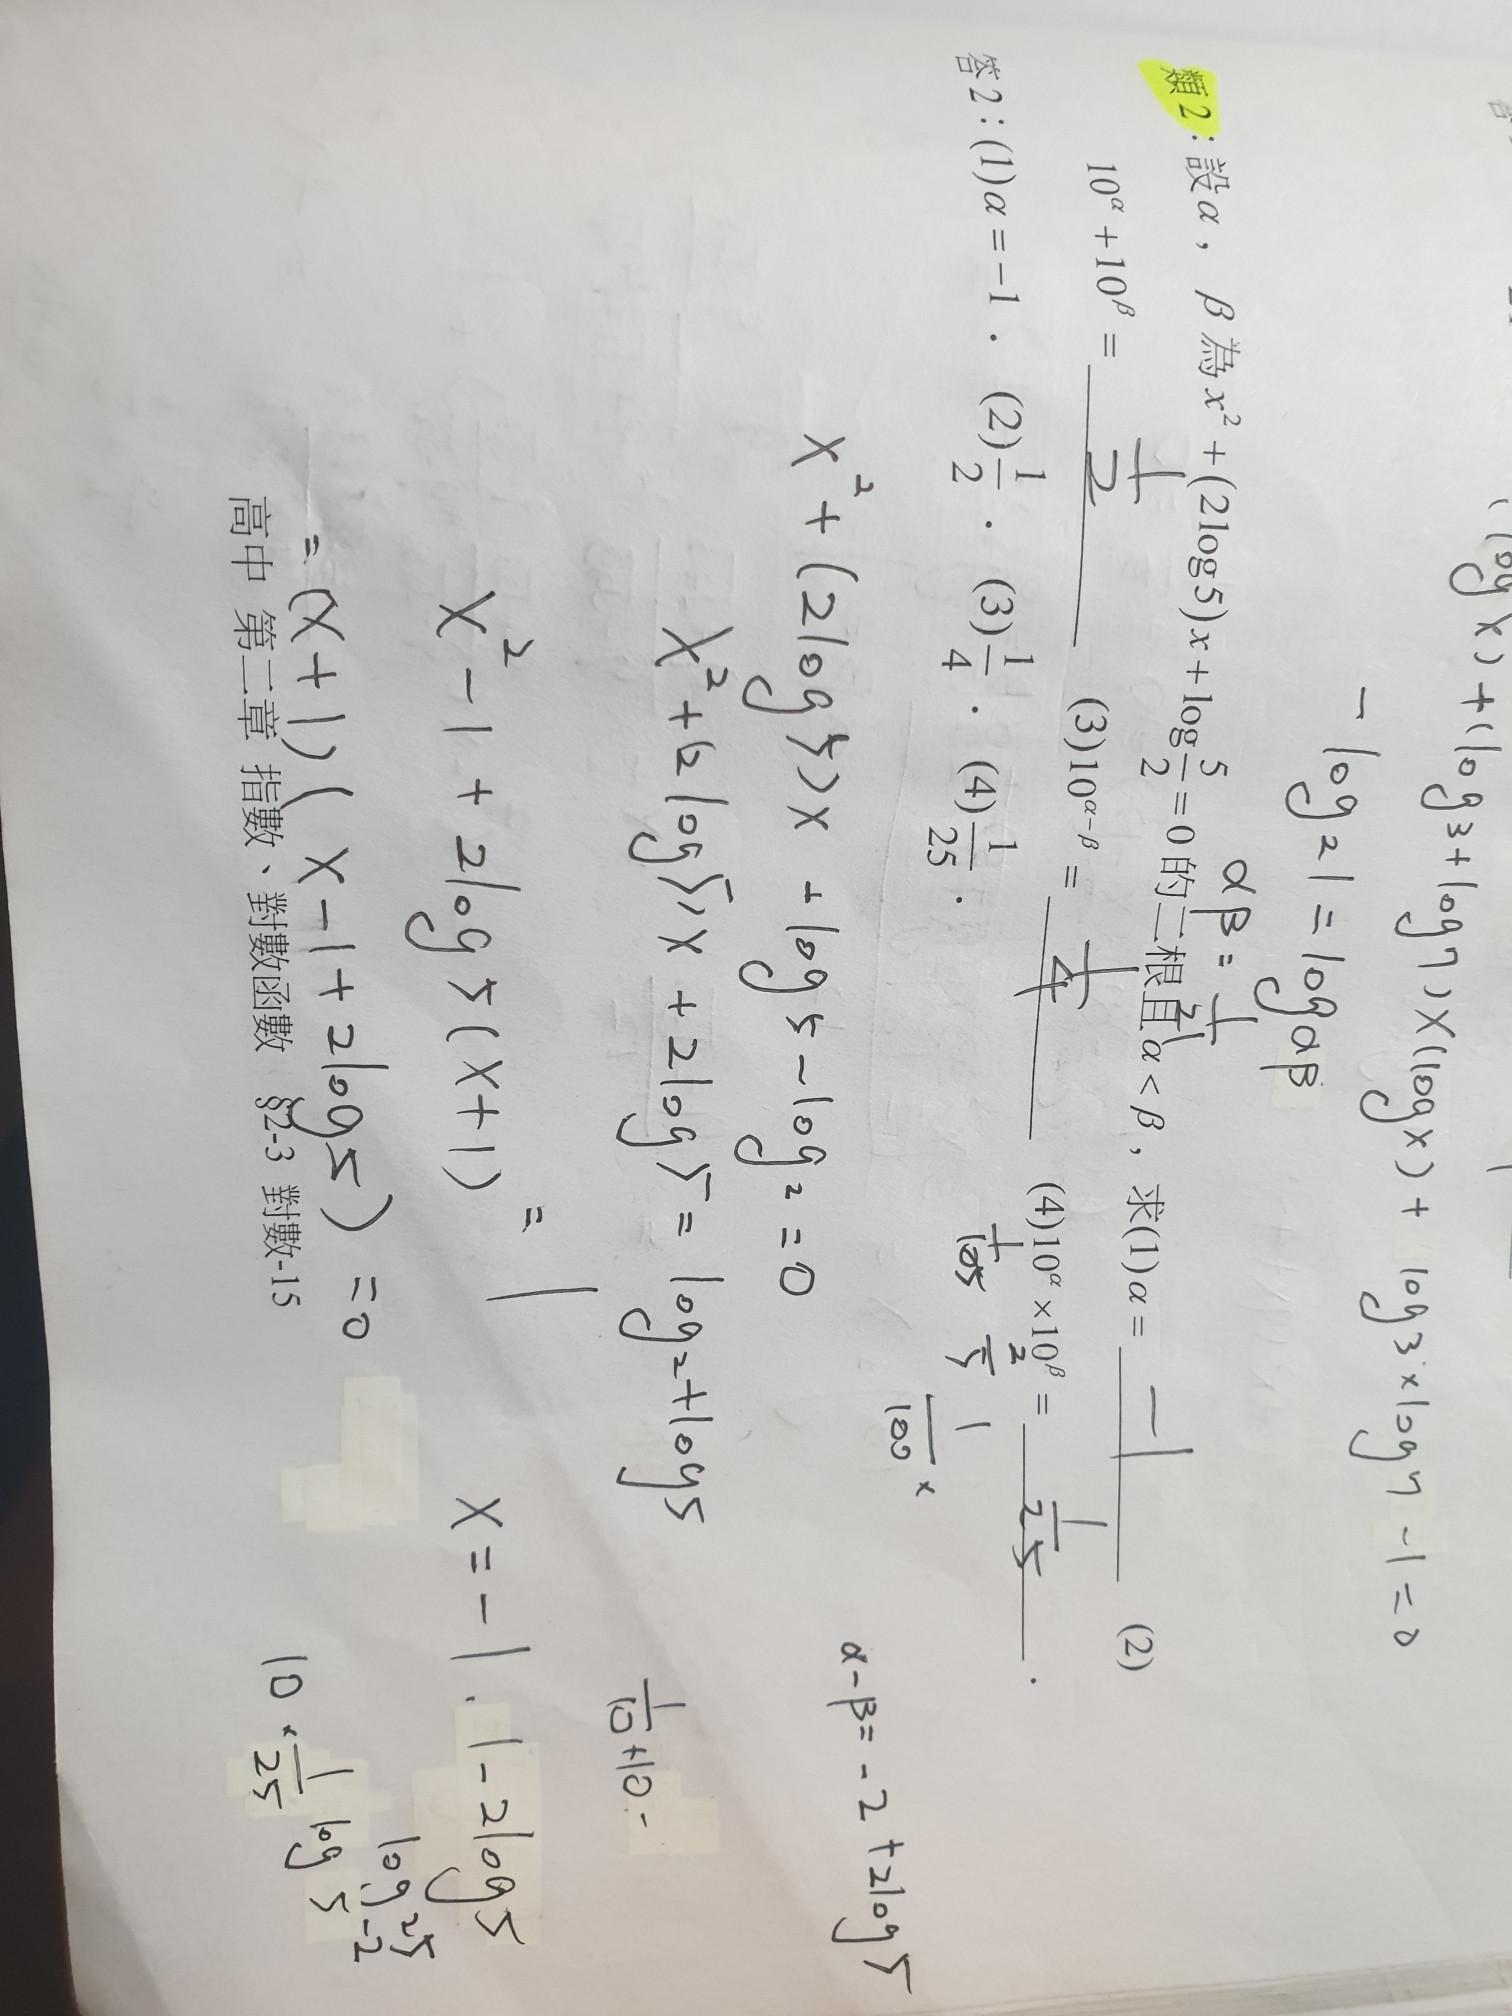 (log x) + (log 3 + log 7) x (log x) + log 3 × log 7 - 1 = 0
- log 21 = log αβ
αβ = 1/21
類2：設α，β為x² + (2log5)x + log 5/2 = 0的二根且α < β，求(1)α = -1 (2)
10^α + 10^β = 1/2 (3)10^(α-β) = 1/4 (4)10^α × 10^β = 1/25 .
答2：(1)α = -1． (2)1/2． (3)1/4． (4)1/25．
1/100 ×
α - β = -2 + 2log5
x² + (2log5)x + log5 - log2 = 0
x² + (2log5)x + 2log5 = log2 + log5
1/10 + 10
x² - 1 + 2log5(x+1) = 1
x = -1 . 1 - 2log5
log 25 -2
= (x+1)(x - 1 + 2log5) = 0
10 × 1/25 log 5
高中 第二章 指數、對數函數 §2-3 對數-15